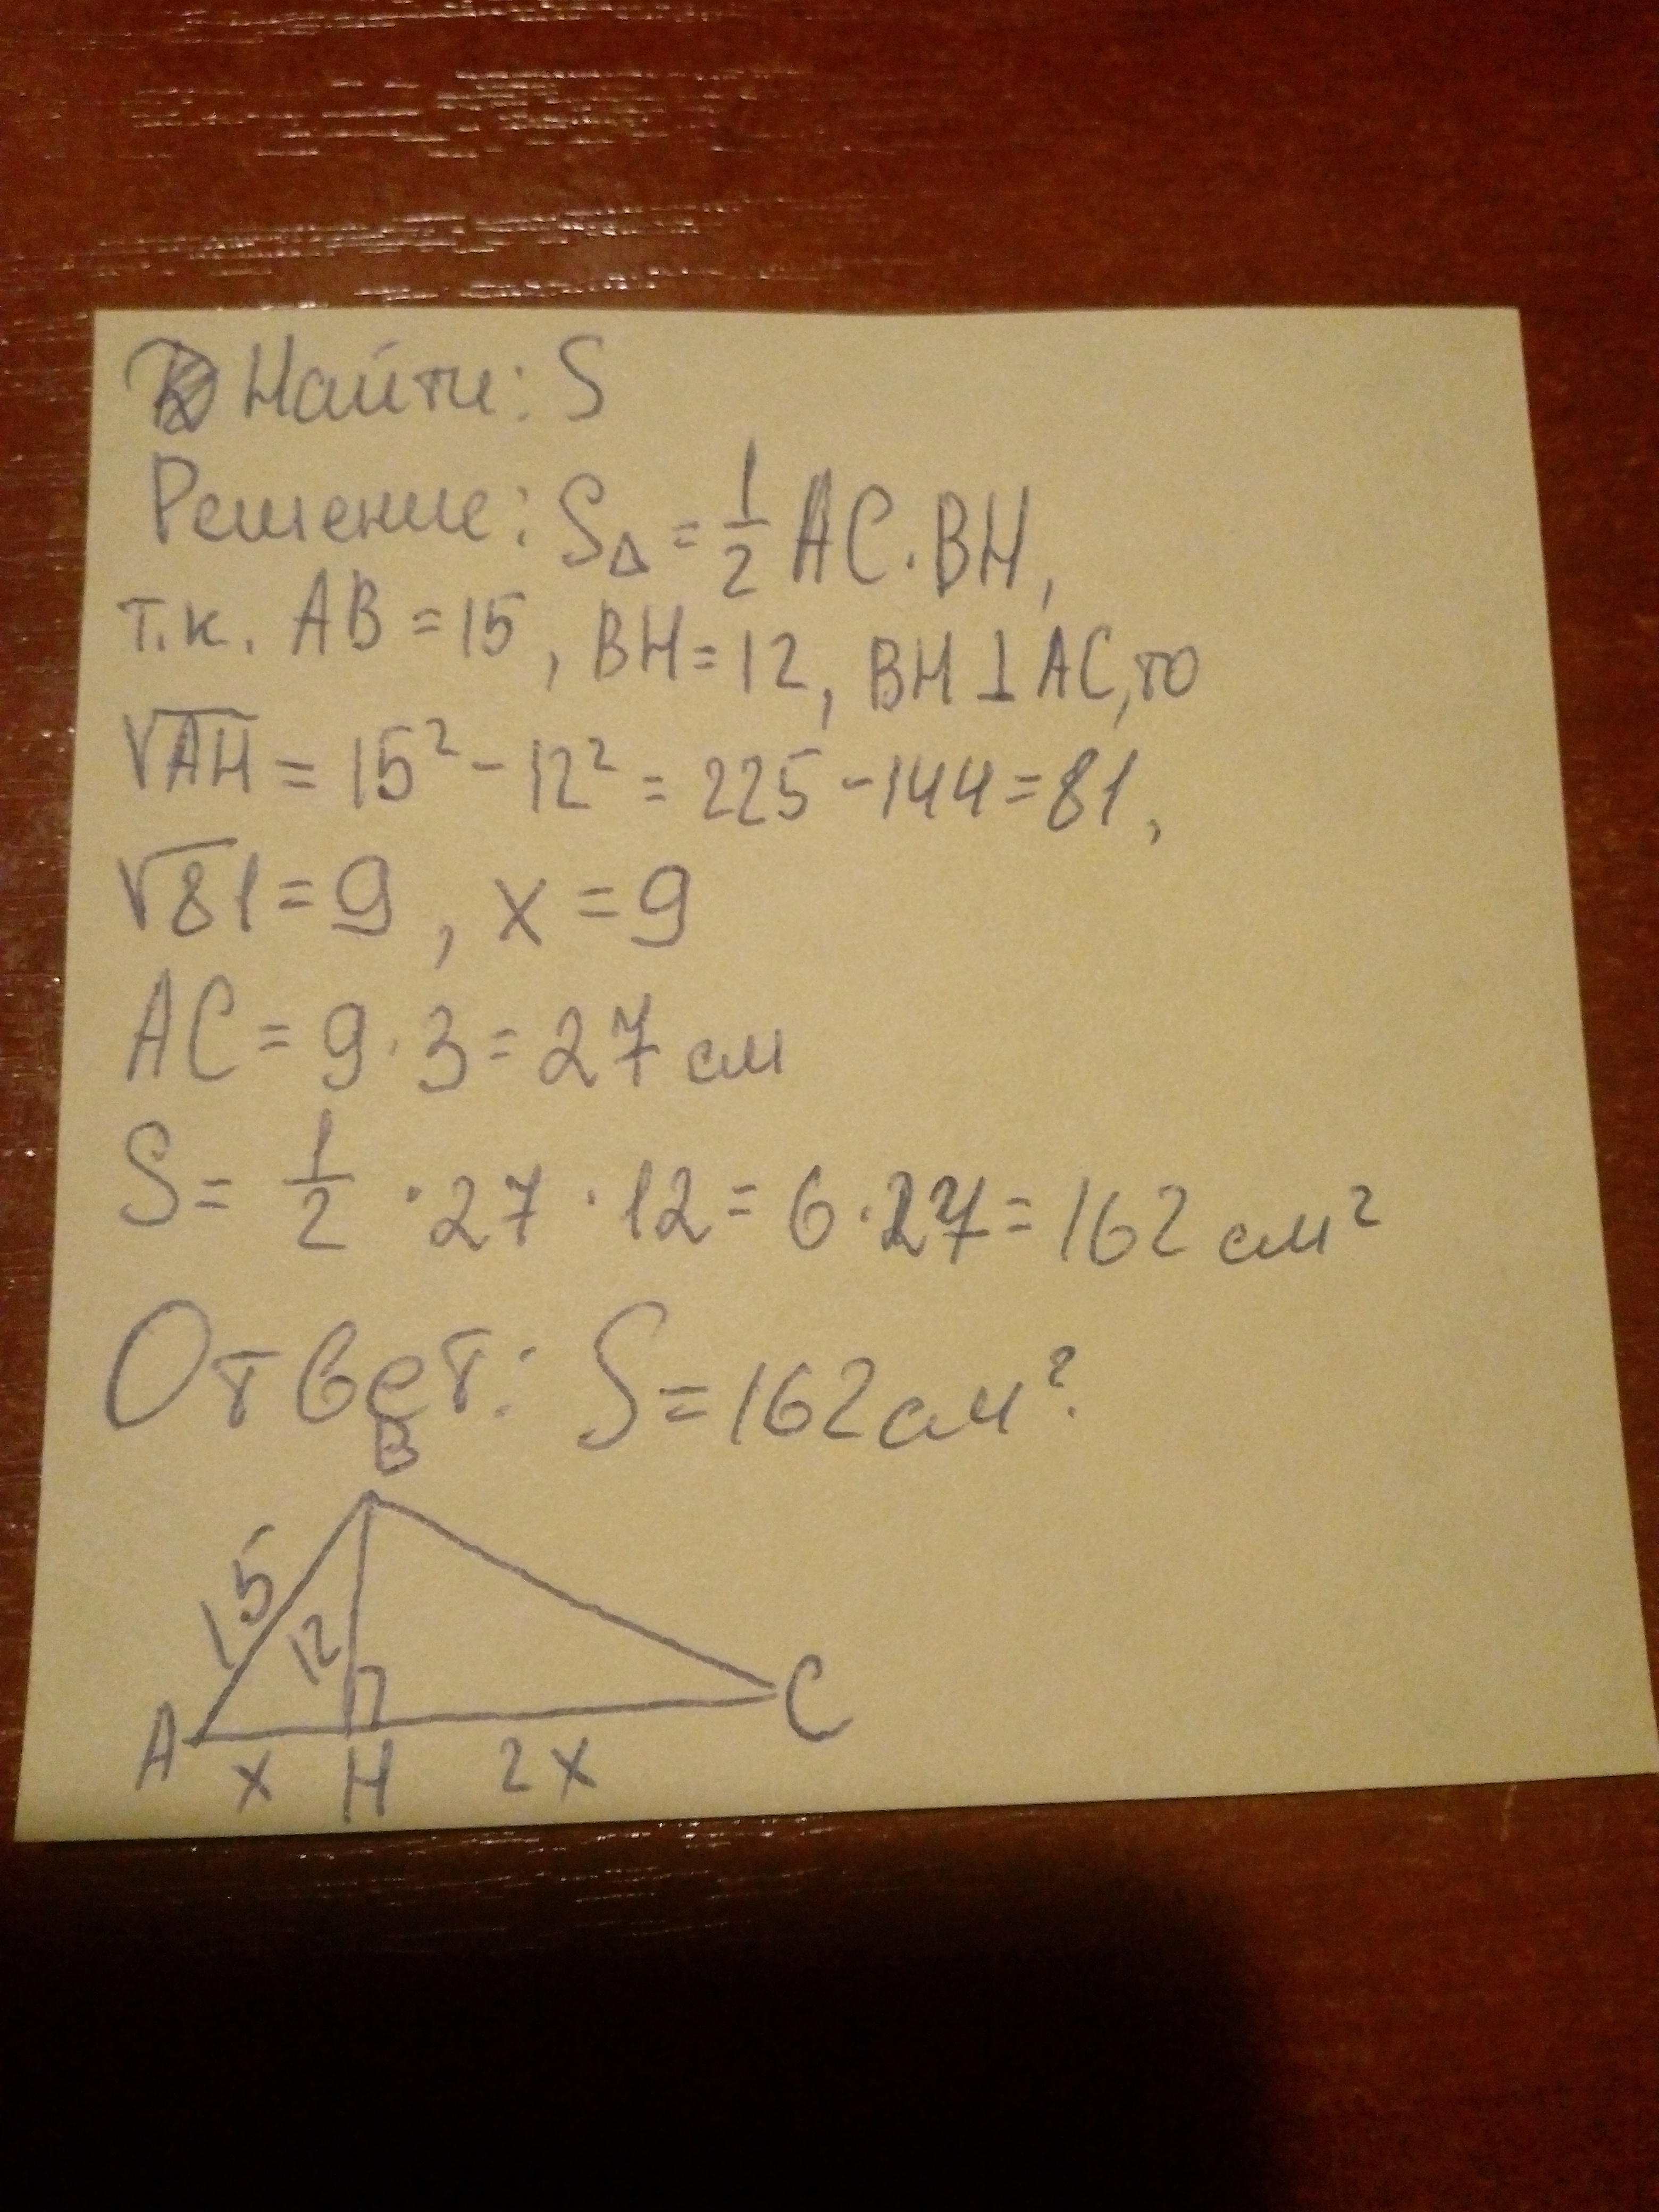 Найти: S
Решение: S△ = 1/2 AC · BH,
т.к. AB = 15, BH = 12, BH ⊥ AC, то
√AH = 15² - 12² = 225 - 144 = 81,
√81 = 9, x = 9
AC = 9 · 3 = 27 см
S = 1/2 · 27 · 12 = 6 · 27 = 162 см²
Ответ: S = 162 см².
B
15
12
A
C
x
H
2x